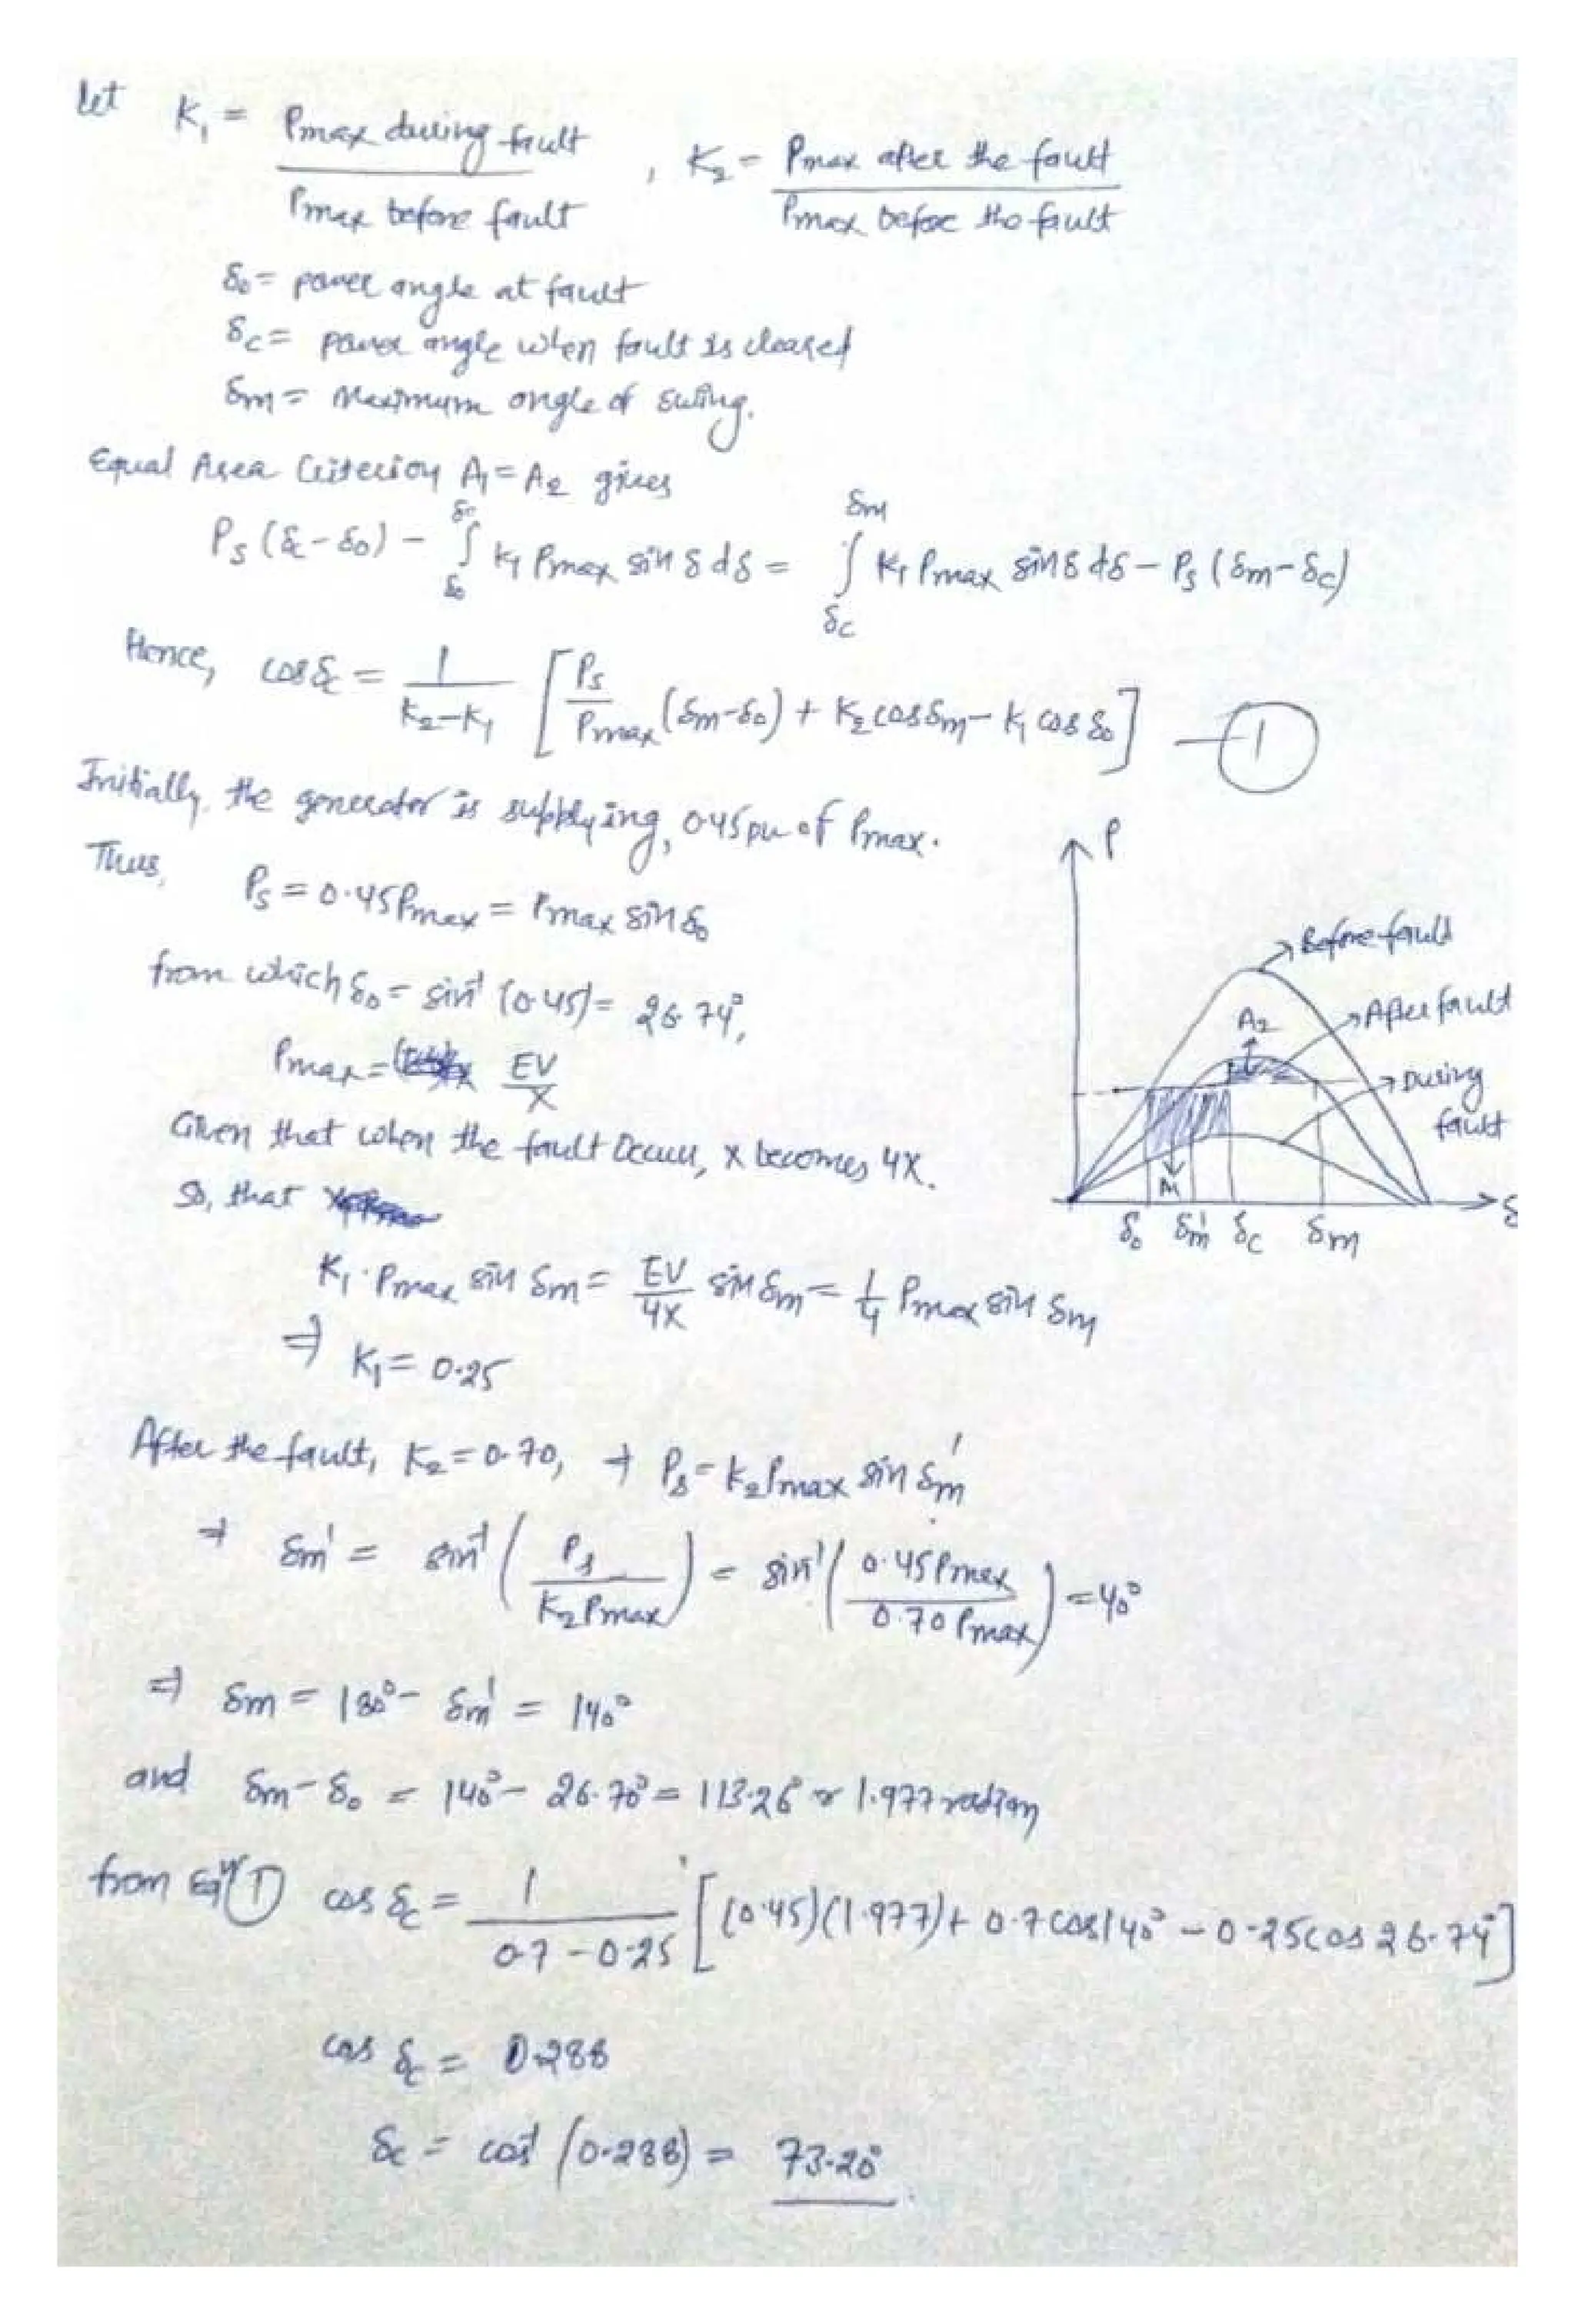 let K₁ = Pmax during fault / Pmax before fault , K₂ = Pmax after the fault / Pmax before the fault
δ₀ = power angle at fault
δc = power angle when fault is cleared
δm = Maximum angle of swing.
Equal Area Criterion A₁ = A₂ gives
Ps (δc - δ₀) - ∫_{δ₀}^{δc} K₁ Pmax sin δ dδ = ∫_{δc}^{δm} K₁ Pmax sin δ dδ - Ps (δm - δc)
Hence, cos δc = 1 / (K₂ - K₁) [ Ps / Pmax (δm - δ₀) + K₂ cos δm - K₁ cos δ₀ ] — ①
Initially, the generator is supplying, 0.45 pu of Pmax.
Thus, Ps = 0.45 Pmax = Pmax sin δ₀
from which δ₀ = sin⁻¹ (0.45) = 26.74°,
Pmax = EV / X
Given that when the fault occur, X becomes 4X.
So, that
K₁ . Pmax sin δm = EV / 4X sin δm = 1/4 Pmax sin δm
⇒ K₁ = 0.25
P
Before fault
After fault
A₂
During fault
A₁
δ₀ δm' δc δm
δ
After the fault, K₂ = 0.70, → Ps = K₂ Pmax sin δm'
→ δm' = sin⁻¹ ( Ps / K₂ Pmax ) = sin⁻¹ ( 0.45 Pmax / 0.70 Pmax ) = 40°
⇒ δm = 180° - δm' = 140°
and δm - δ₀ = 140° - 26.70° = 113.26° or 1.977 radian
from Eqⁿ ① cos δc = 1 / (0.7 - 0.25) [ (0.45)(1.977) + 0.7 cos 140° - 0.25 cos 26.74° ]
cos δc = 0.288
δc = cos⁻¹ (0.288) = 73.20°